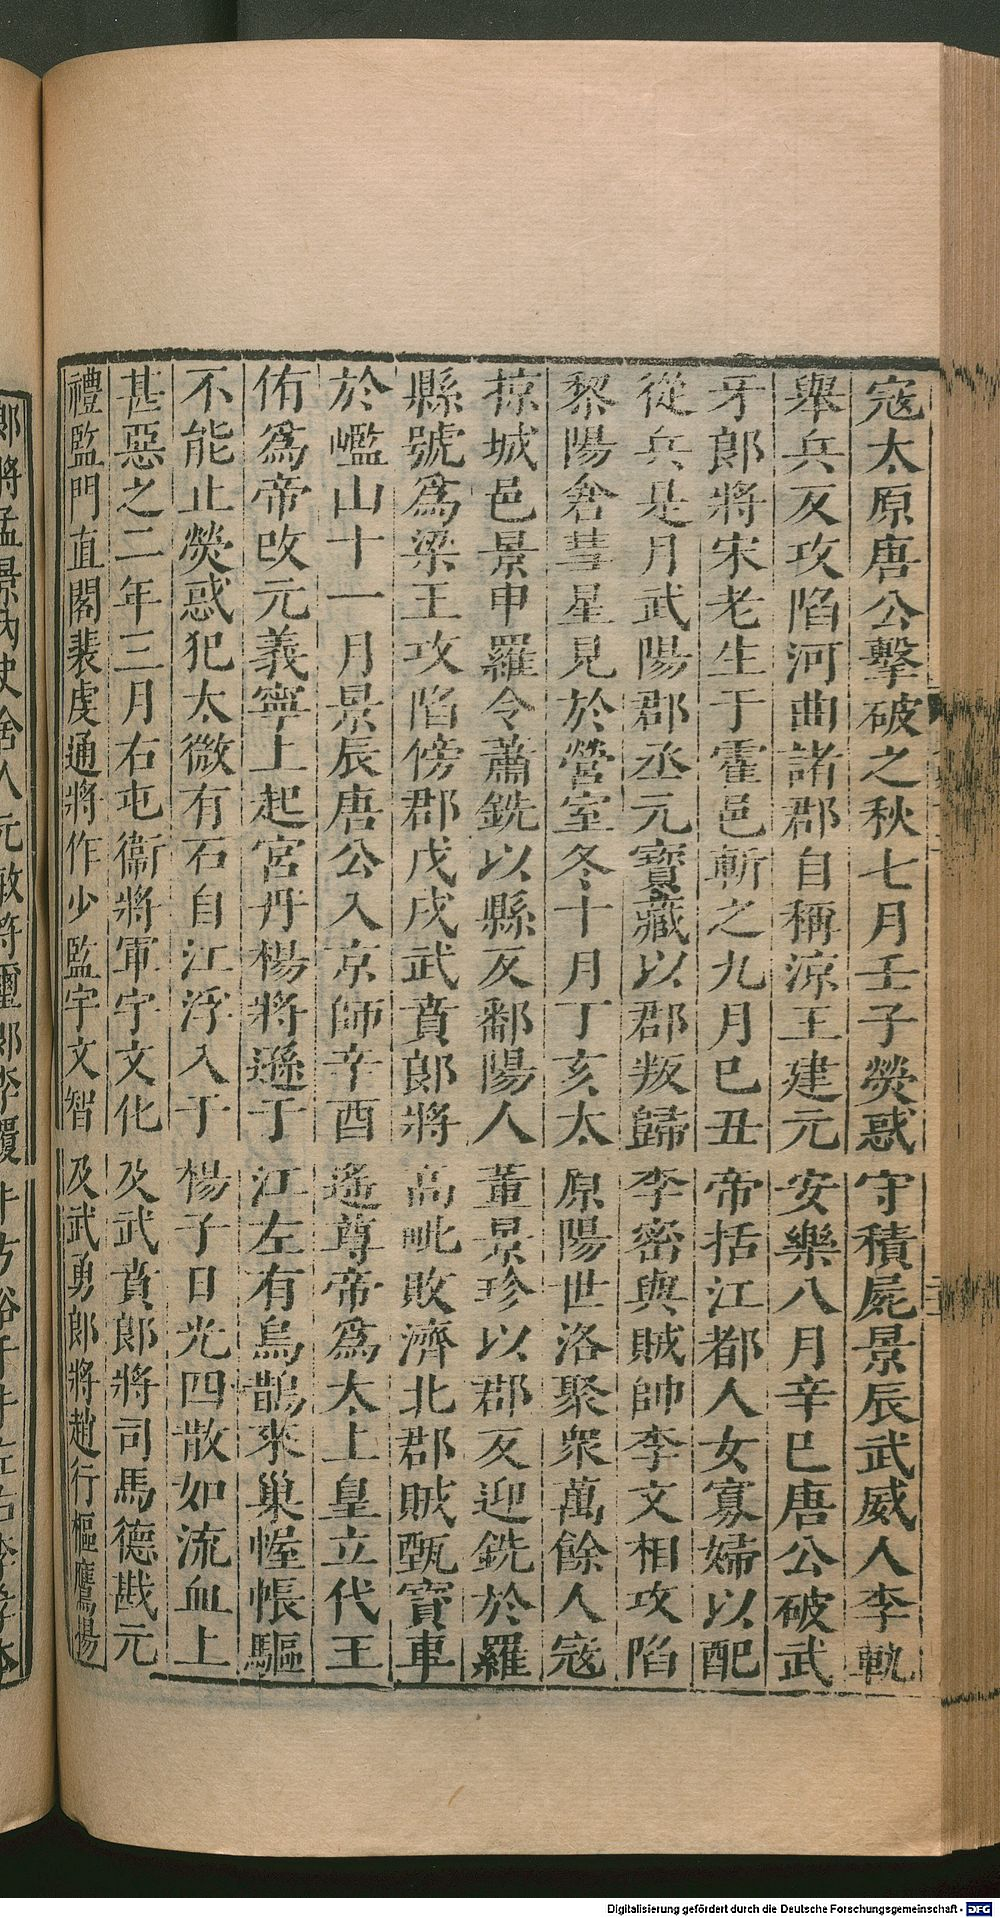 寇太原唐公擊破之秋七月壬子熒惑守積屍景辰武威人李軌
舉兵反攻陷河曲諸郡自稱涼王建元安樂八月辛巳唐公破武
牙郎將宋老生于霍邑斬之九月巳丑帝括江都人女寡婦以配
從兵是月武陽郡丞元寶藏以郡叛歸李密與賊帥李文相攻陷
黎陽倉彗星見於營室冬十月丁亥太原陽世洛聚衆萬餘人寇
掠城邑景申羅令蕭銑以縣反鄱陽人董景珍以郡反迎銑於羅
縣號爲梁王攻陷傍郡戊戌武賁郎將高毗敗濟北郡賊甄寶車
於㠝山十一月景辰唐公入京師辛酉遥尊帝爲太上皇立代王
侑爲帝改元義寧上起宮丹楊將遜于江左有烏鵲來巢幄帳驅
不能止熒惑犯太微有石自江浮入于楊子日光四散如流血上
甚惡之二年三月右屯衞將軍宇文化及武賁郎將司馬德戡元
禮監門直閣裴虔通將作少監宇文智及武勇郎將趙行樞鷹揚
郎將孟景内史舍人元敏符璽郎李覆牛方裕千牛左右李孝本
Digitalisierung gefördert durch die Deutsche Forschungsgemeinschaft - DFG